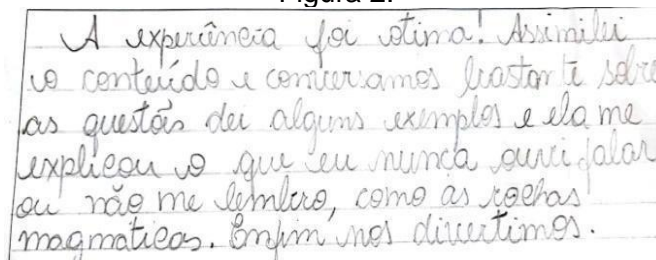 Figura 2.
A experiência foi otima! Assimilei
o conteúdo e conversamos bastante sobre
as questões dei alguns exemplos e ela me
explicou o que eu nunca ouvi falar
ou não me lembro, como as rochas
magmáticas. Enfim nos divertimos.